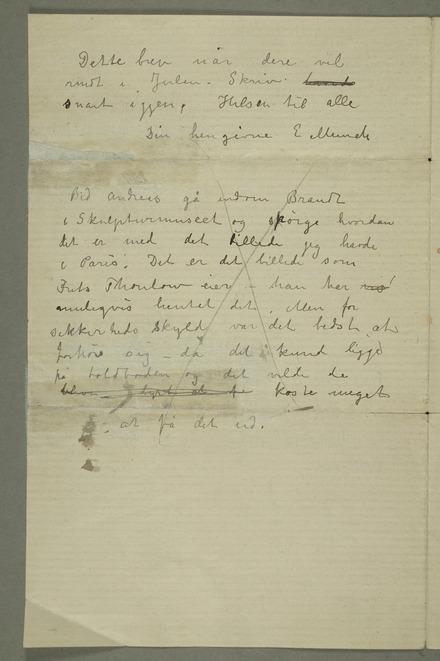 Dette brev når dere vel
midt i Julen. Skriv
snart igjen. Hilsen til alle
Din hengivne E Munch
Bed Andreas gå indom Brandt
i Skulpturmuseet og spørge hvordan
det er med det billede jeg havde
i Paris. Det er det billede som
Frits Thaulow eier – han har
muligvis hentet det. Men for
sikkerheds skyld var det bedst at
forhøre sig – da det kund ligge
på toldboden og det vilde
koste meget
at få det ud.